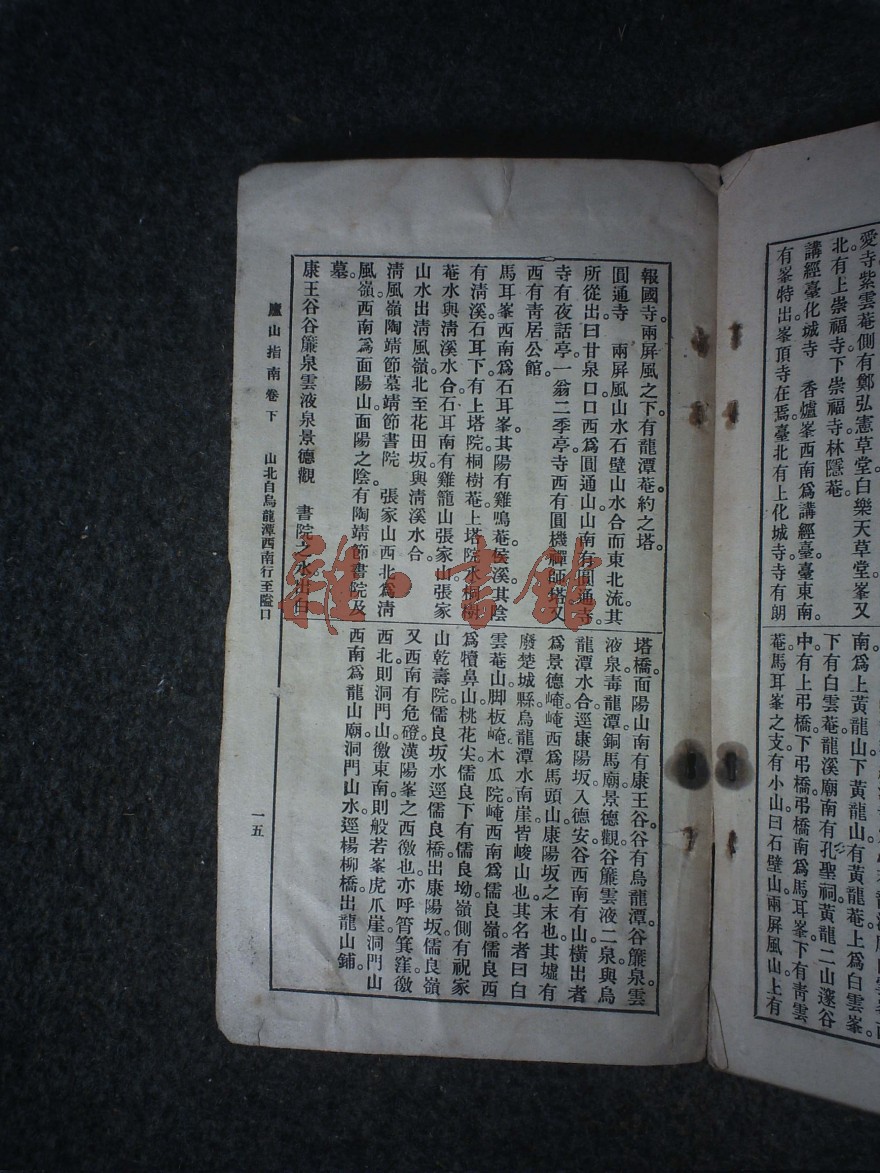 愛寺紫雲菴側有鄭弘憲草堂。白樂天草堂峯又
北有上崇福寺下崇福寺林隱菴。
講經臺化城寺　香爐峯西南為講經臺。臺東南。
有峯特出峯頂寺在焉。臺北有上化城寺。寺有朗
南。為上黃龍山下黃龍山。有黃龍菴。上為白雲峯。
下有白雲菴。龍溪廟南有孔聖祠。黃龍二山邃谷
中。有上弔橋下弔橋。弔橋南為馬耳峯。下有靑雲
菴。馬耳峯之支。有小山曰石壁山。兩屏風山上有
報國寺。兩屏風之下。有龍潭菴約之塔。
圓通寺　兩屏風山水石壁山水合而東北流。其
所從出曰甘泉口。口西為圓通山。山南有圓通寺。
寺有夜話亭。一翁二季亭。寺西有圓機禪師塔。又
西有靑居公館。
馬耳峯西南為石耳峯。其陽有雞鳴菴侯溪。其陰
有淸溪。石耳下。有上塔院桐樹菴。上塔院水桐樹
菴水與淸溪水合。石耳南有雞籠山張家山。張家
山水出淸風嶺北。至花田坂。與淸溪水合。
淸風嶺陶靖節墓靖節書院　張家山西北為淸
風嶺。嶺西南為面陽山。面陽之陰。有陶靖節書院及
墓。
康王谷谷簾泉雲液泉景德觀　書院之水出白
塔橋。面陽山南有康王谷。谷有烏龍潭。谷簾泉。雲
液泉。毒龍潭。銅馬廟。景德觀。谷簾雲液二泉。與烏
龍潭水合。逕康陽坂。入德安。谷西南有山橫出者
為景德崦。崦西為馬頭山。康陽坂之末也。其墟有
廢楚城縣。烏龍潭水南崖皆峻山也。其名者曰白
雲菴山。脚板崦。木瓜院。崦西南為儒良嶺。儒良西
為犢鼻山。桃花尖。儒良下有儒良坳。嶺側有祝家
山乾壽院。儒良坂水逕儒良橋出康陽坂。儒良嶺
又西南有危磴。漢陽峯之西徼也。亦呼筲箕窪。徼
西北則洞門山。徼東南則般若峯虎爪崖。洞門山
西南為龍山廟。洞門山水逕楊柳橋。出龍山鋪。
廬山指南卷下　山北自烏龍潭西南行至隘口
一五
雜·書館